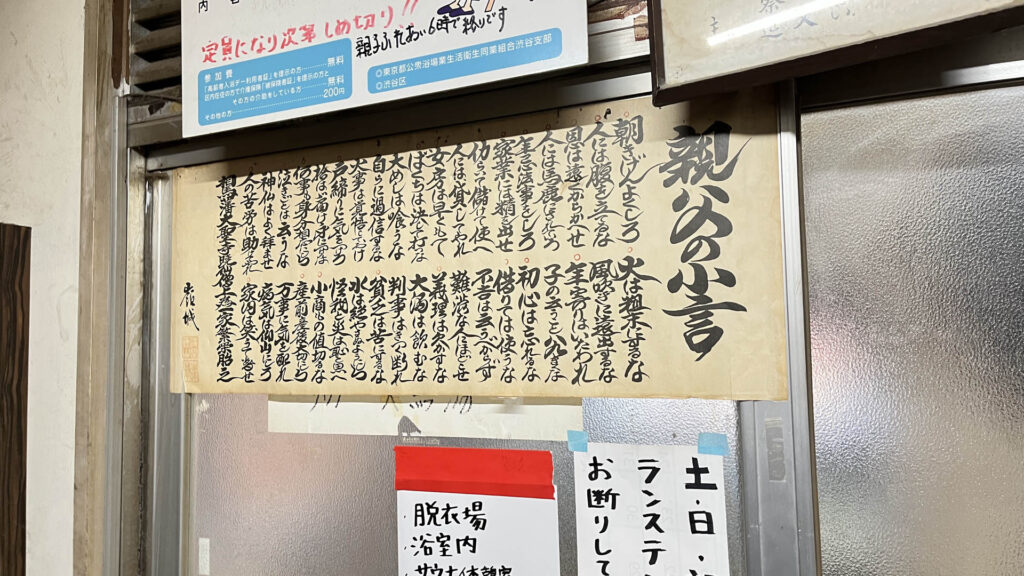 内
定員になり次第しめ切り!!
親子ふれあい6時で終りです
参加費
「高齢者入浴デー利用者証」を提示の方……無料
区内在住の方で介護保険「被保険者証」を提示の方と
その方の介助をしている方……無料
その他の方……200円
◎東京都公衆浴場業生活衛生同業組合渋谷支部
◎渋谷区
親父の小言
朝きげんよくしろ
火は粗末にするな
人には腹を立るな
風吹きに遠出するな
恩は遠くからかへせ
年寄りはいたわれ
人には馬鹿にされていろ
子の云うこと八九きくな
年忌法事をしろ
初心は忘れるな
家業には精を出せ
借りては使うな
働いて儲けて使へ
不吉は云うべからず
人には貸してやれ
難渋な人にほどこせ
女房は早くもて
義理は欠かすな
ばくちは決して打つな
大酒は飲むな
大めしは喰うな
判事はきつく断れ
自らに過信するな
貧乏は苦にするな
大事は覚悟しておけ
水は絶やさぬようにしろ
戸締りに気をつけろ
怪我と災は恥と思へ
拾わば届け身につけるな
小商の値切るな
何事も身分相応にしろ
産前産後大切にしろ
泣きごとは云うな
万事に気を配れ
神仏はよく拝ませ
病気は仰山にしろ
人の苦労は助けてやれ
家内は笑ふて暮せ
脱衣場
浴室内
土・日・
ランステ
お断りして